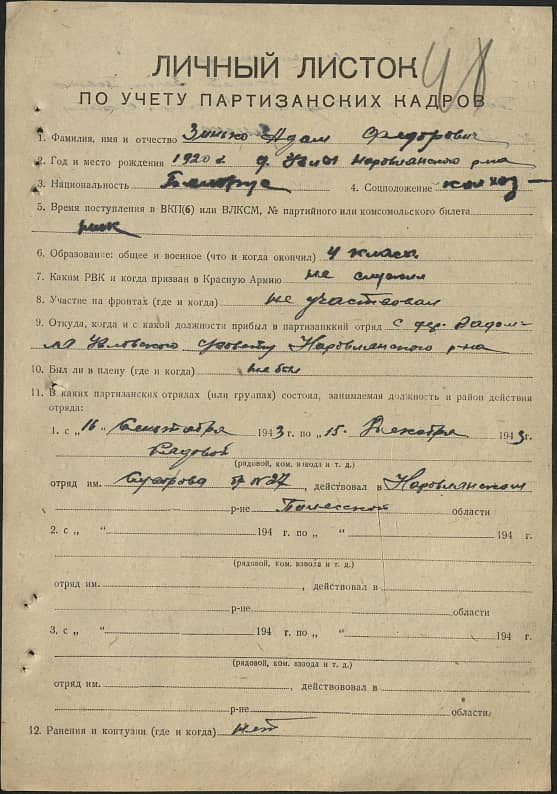 ЛИЧНЫЙ ЛИСТОК
ПО УЧЕТУ ПАРТИЗАНСКИХ КАДРОВ
1. Фамилия, имя и отчество Зинько Адам Федорович
2. Год и место рождения 1920 г. д. Наровлянского р-на
3. Национальность Белорус 4. Соцположение колхоз
5. Время поступления в ВКП(б) или ВЛКСМ, № партийного или комсомольского билета
6. Образование: общее и военное (что и когда окончил) 4 класса
7. Каким РВК и когда призван в Красную Армию не служил
8. Участие на фронтах (где и когда) не участвовал
9. Откуда, когда и с какой должности прибыл в партизанкий отряд с дер.
Наровлянского р-на
10. Был ли в плену (где и когда) не был
11. В каких партизанских отрядах (или группах) состоял, занимаемая должность и район действия
отряда:
1. с „16 " Сентября 1943 г. по „15. Декабря 1943 г.
Рядовой
(рядовой, ком. взвода и т. д.)
отряд им. Суворова бр №27, действовал в Наровлянском
р-не Полесской области
2. с „ " 194 г. по „ " 194 г.
(рядовой, ком. взвода и т. д.)
отряд им. , действовал в
р-не области
3. с „ " 194 г. по „ " 194 г.
(рядовой, ком. взвода и т. д.)
отряд им. , действововал в
р-не области
12. Ранения и контузии (где и когда) нет